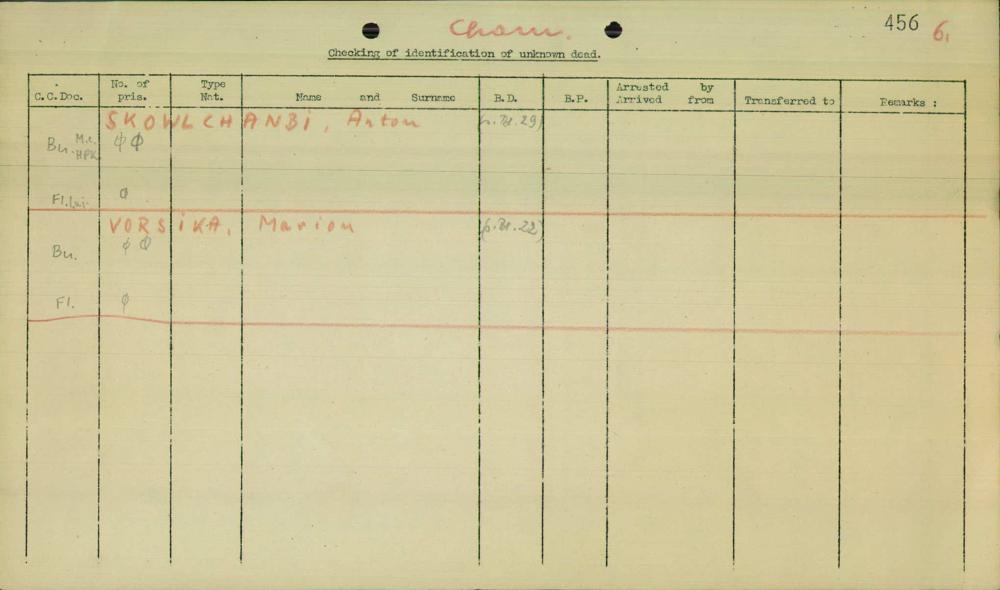 Cham. 456 6.
Checking of identification of unknown dead.
C.C.Doc. No. of pris. Type Nat. Name and Surname B.D. B.P. Arrested by Arrived from Transferred to Remarks :
SKOWLCHANBI, Anton
Bu. M.c. HPK φ φ
Fl. φ
VORSIKA, Marion
Bu. φ φ
Fl. φ